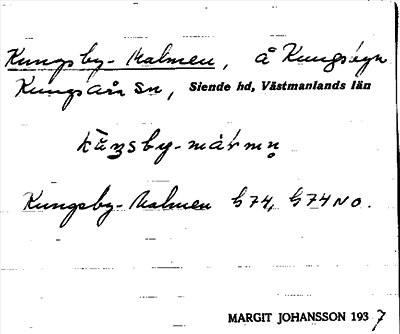 Kungsby-Malmen, å Kungsbyn
Kungsåra Sn, Siende hd, Västmanlands län
Kungsby-Malmen G74, G74NO.
MARGIT JOHANSSON 1937